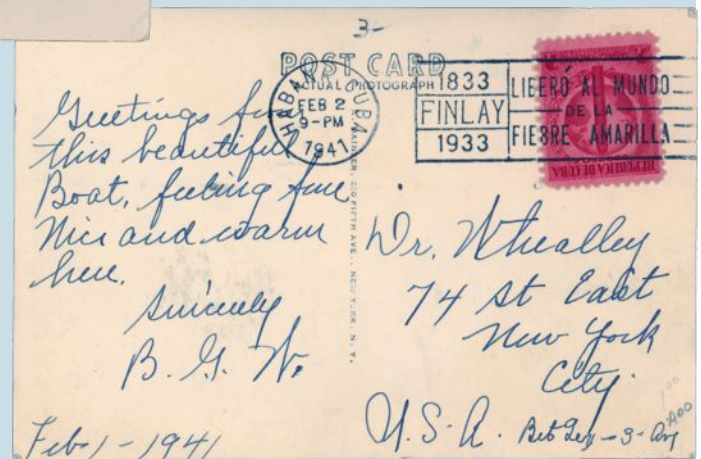 3-
POST CARD
ACTUAL PHOTOGRAPH
HABANA, CUBA
FEB 2
9-PM
1941
1833
FINLAY
1933
LIBERÓ AL MUNDO
DE LA
FIEBRE AMARILLA
REPUBLICA DE CUBA
FIFTH AVE., NEW YORK, N. Y.
Greetings from
this beautiful
Boat, feeling fine
Nice and warm
here.
Sincerely
B. G. W.
Feb-1-1941
Dr. Whealley
74 St East
New York
City.
U.S.A.
Bet Lex - 3 - Av